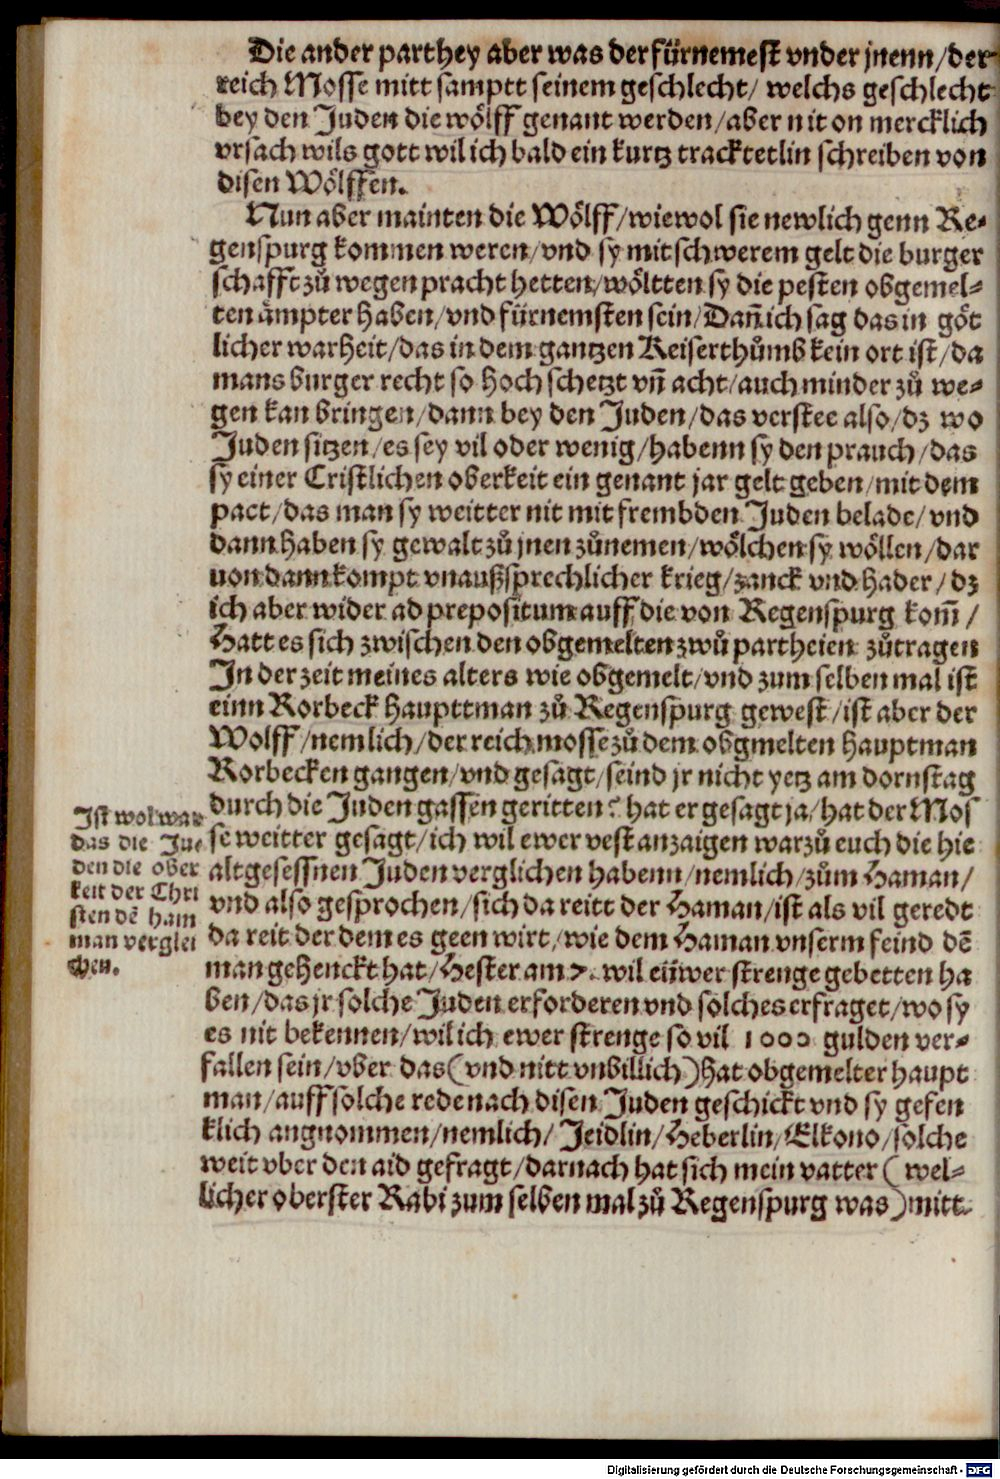 Die ander parthey aber was der fürnemest vnder jnenn/der
reich Mosse mitt samptt seinem geschlecht/ welchs geschlecht
bey den Juden die wölff genant werden/aber nit on mercklich
vrsach wils gott wil ich bald ein kurtz tracktetlin schreiben von
disen Wölffen.
Nun aber mainten die Wölff/wiewol sie newlich genn Re-
genspurg kommen weren/vnd sy mit schwerem gelt die burger
schafft zů wegen pracht hetten/wöltten sy die pesten obgemel-
ten ämpter haben/vnd fürnemsten sein/Dañ ich sag das in göt
licher warheit/das in dem gantzen Keiserthůmb kein ort ist/da
mans burger recht so hoch schetzt vñ acht/auch minder zů we-
gen kan bringen/dann bey den Juden/das verstee also/dz wo
Juden sitzen/es sey vil oder wenig/habenn sy den prauch/das
sy einer Cristlichen oberkeit ein genant jar gelt geben/mit dem
pact/das man sy weitter nit mit frembden Juden belade/vnd
dann haben sy gewalt zů jnen zůnemen/wölchen sy wöllen/dar
uon dann kompt vnaußsprechlicher krieg/zanck vnd hader/dz
ich aber wider ad prepositum auff die von Regenspurg kom̃/
Hatt es sich zwischen den obgemelten zwů partheien zůtragen
In der zeit meines alters wie obgemelt/vnd zum selben mal ist
einn Rorbeck haupttman zů Regenspurg gewest/ist aber der
Wolff/nemlich/der reich mosse zů dem obgmelten hauptman
Rorbecken gangen/vnd gesagt/seind jr nicht yetz am dornstag
durch die Juden gassen geritten? hat er gesagt ja/hat der Mos
se weitter gesagt/ich wil ewer vest anzaigen warzů euch die hie
altgesessnen Juden verglichen habenn/nemlich/zům Haman/
vnd also gesprochen/sich da reitt der Haman/ist als vil geredt
da reit der dem es geen wirt/wie dem Haman vnserm feind dẽ
man gehenckt hat/Hester am 7. wil eüwer strenge gebetten ha
ben/das jr solche Juden erforderen vnd solches erfraget/wo sy
es nit bekennen/wil ich ewer strenge so vil 1000 gulden ver-
fallen sein/vber das (vnd nitt vnbillich) hat obgemelter haupt
man/auff solche rede nach disen Juden geschickt vnd sy gefen
klich angnommen/nemlich/ Jeidlin/Heberlin/Elkono/solche
weit vber den aid gefragt/darnach hat sich mein vatter (wel-
licher oberster Rabi zum selben mal zů Regenspurg was) mitt
Ist wol war
das die Jue
den die ober
keit der Chri
sten dẽ ham
man verglei
chen.
Digitalisierung gefördert durch die Deutsche Forschungsgemeinschaft - DFG